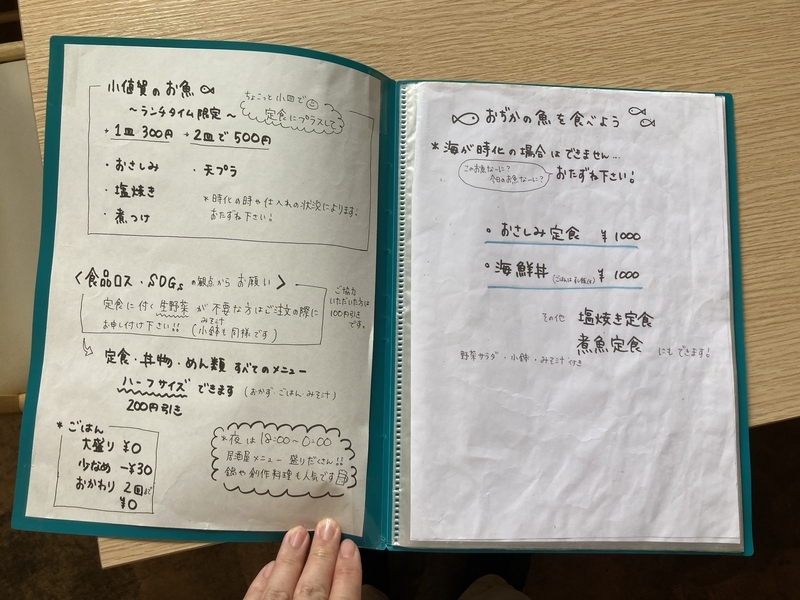 小値賀のお魚
〜ランチタイム限定〜
ちょこっと小皿で
定食にプラスして
・1皿 300円 ・2皿で 500円
・おさしみ ・天プラ
・塩焼き
・煮つけ
*時化の時や仕入れの状況によります。
おたずね下さい!
〈食品ロス・SDGsの観点からお願い〉
定食に付く生野菜が不要な方はご注文の際に
お申し付け下さい!!(小鉢も同様です)
みそ汁
ご協力
いただいた方は
100円引き
です。
定食・丼物・めん類 すべてのメニュー
ハーフサイズできます(おかず・ごはん・みそ汁)
200円引き
*ごはん
大盛り ¥0
少なめ -¥30
おかわり 2回まで
¥0
*夜は18:00〜0:00
居酒屋メニュー 盛りだくさん!!
鍋や創作料理も人気です
おぢかの魚を食べよう
*海が時化の場合はできません…
このお魚なーに?
今日のお魚なーに?
おたずね下さい!
・おさしみ定食 ¥1000
・海鮮丼 ¥1000
その他 塩焼き定食
煮魚定食 にもできます!
野菜サラダ・小鉢・みそ汁付き